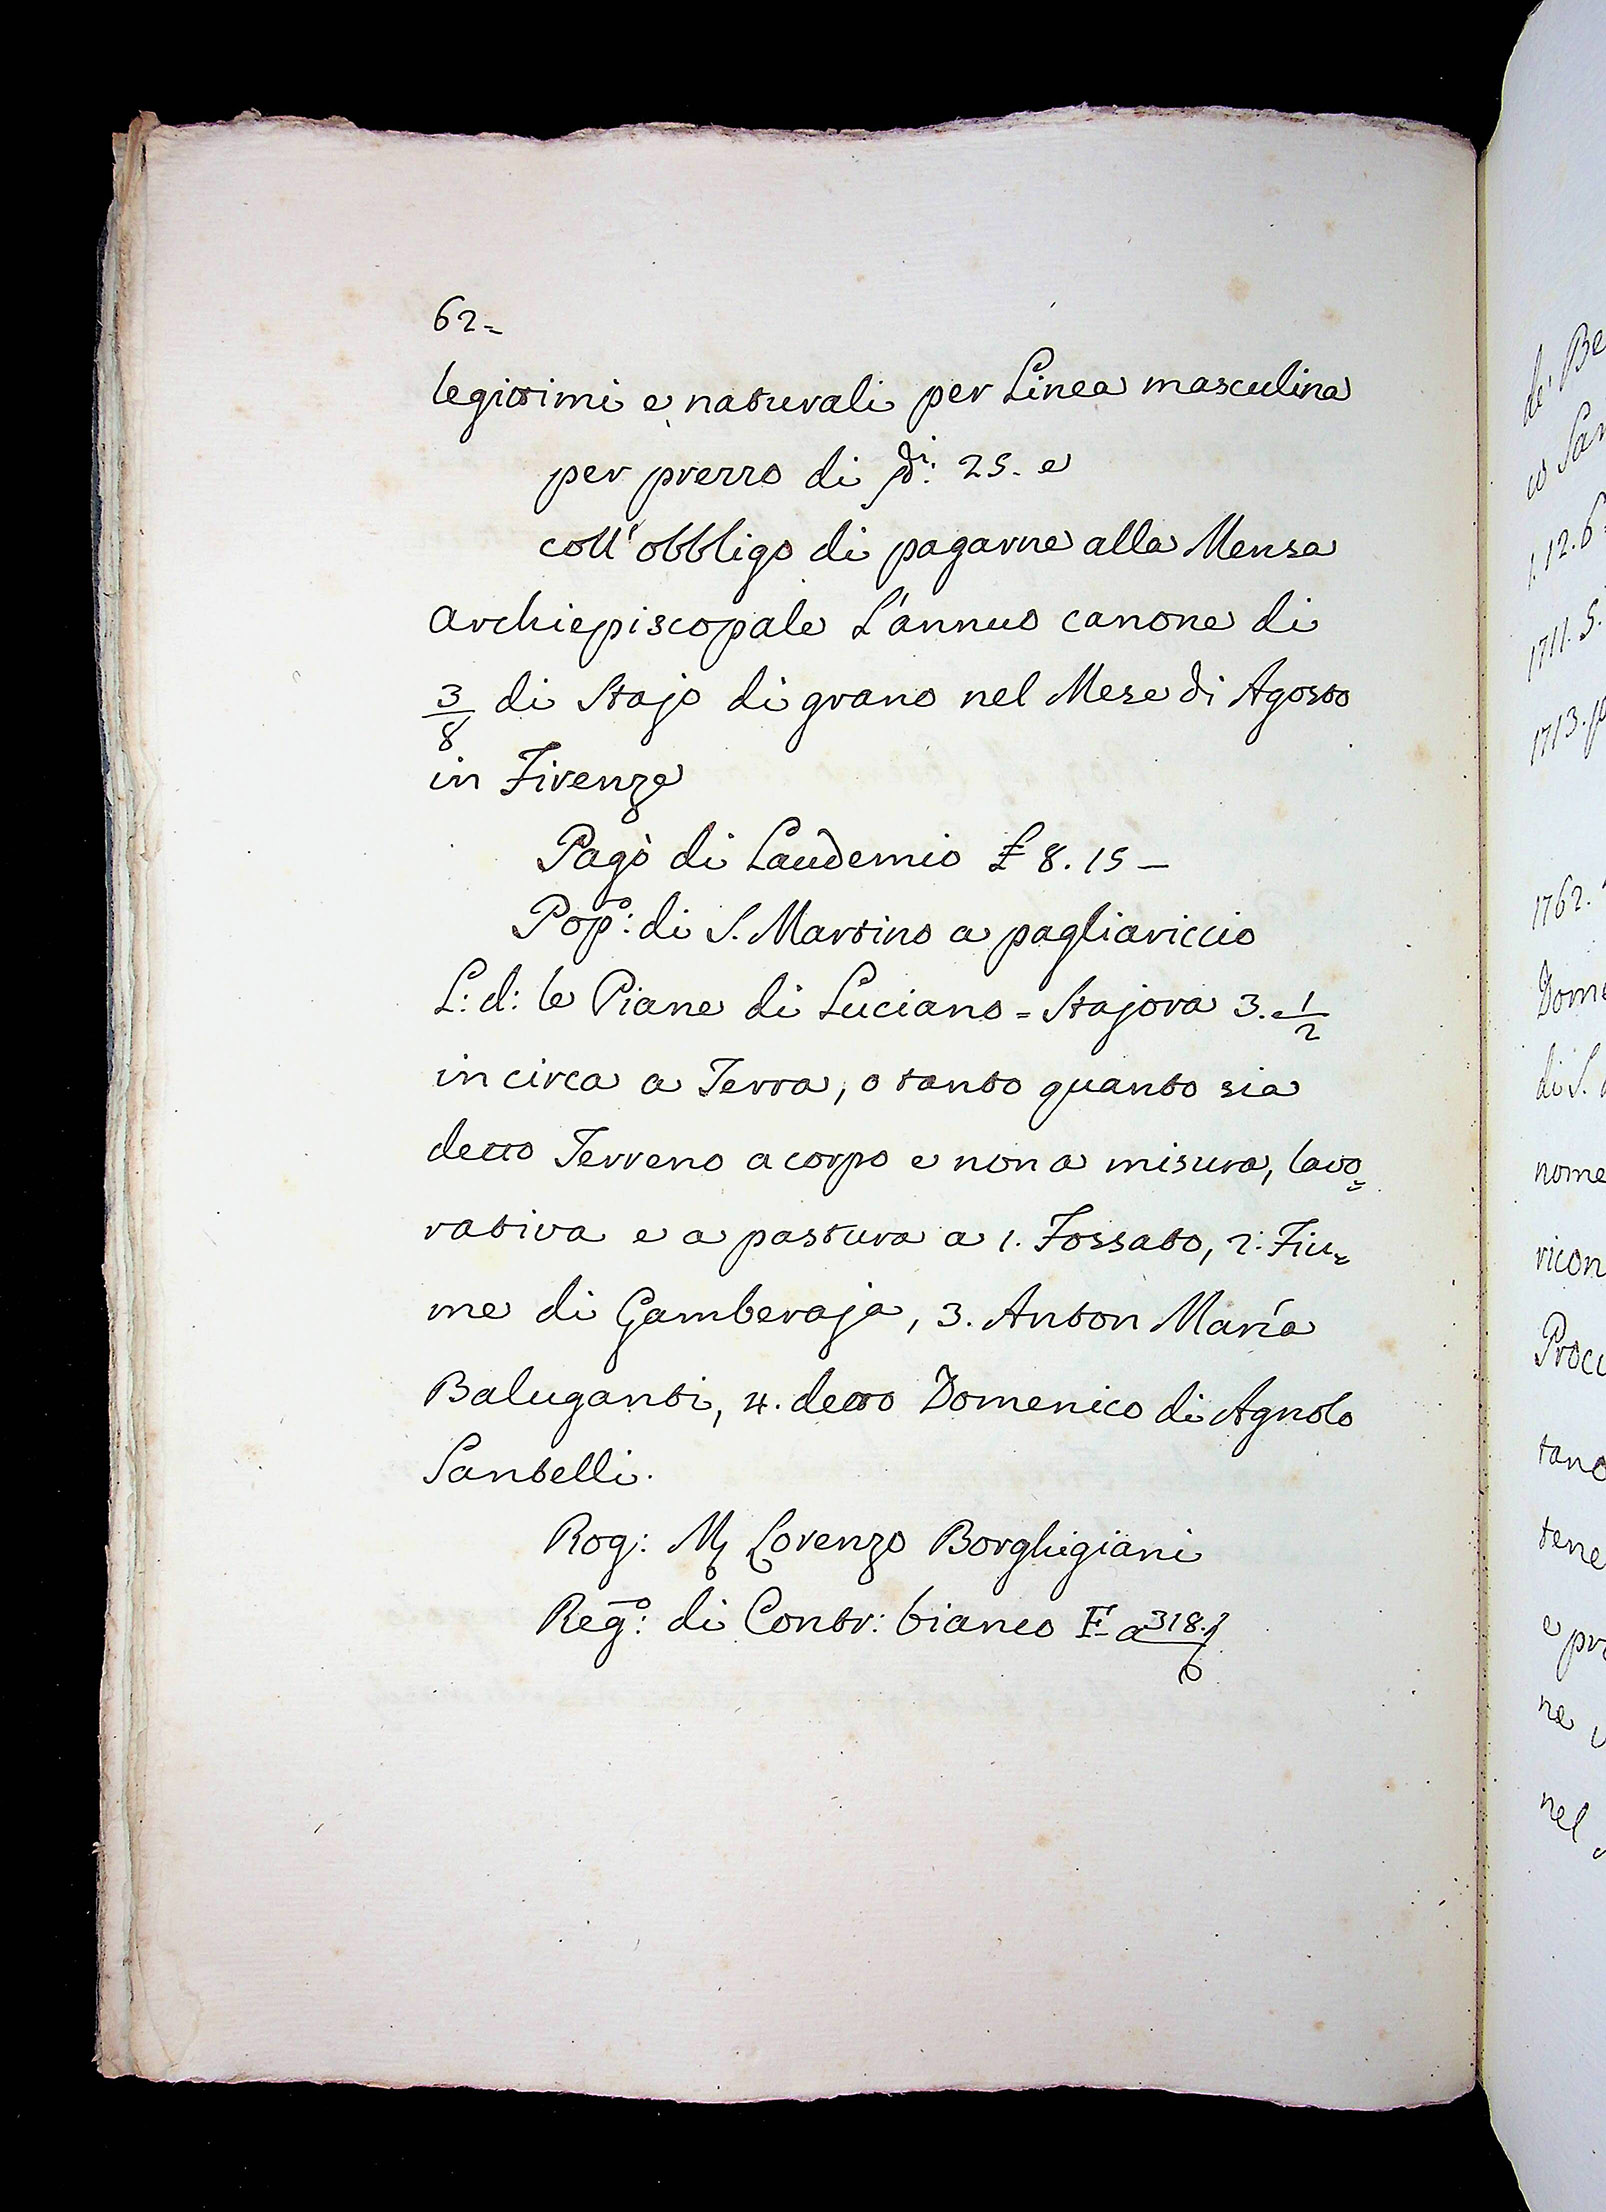 62=
legittimi e naturali per Linea masculina
per prezzo di di: 25. e
coll'obbligo di pagarne alla Mensa
Archiepiscopale L'annuo canone di
3/8 di Stajo di grano nel Mese di Agosto
in Firenze
Pagò di Laudemio £ 8. 15 —
Popo: di S. Martino a pagliariccio
L: d: le Piane di Luciano = Stajora 3. 1/2
in circa a Terra, o tanto quanto sia
detto Terreno a corpo e non a misura, lavo=
rativa e a pastura a 1. Fossato, 2. Fiu=
me di Gamberaja, 3. Anton María
Baluganti, 4. detto Domenico di Agnolo
Santelli.
Rog: Lorenzo Borghigiani
Rego: di Contr: bianco F a 318.
de' Be
co San
1. 12. 6
1711. S.
1713. p
1762.
Dome
di S.
nome
ricon
Procu
tano
tene
e pr
ne
nel